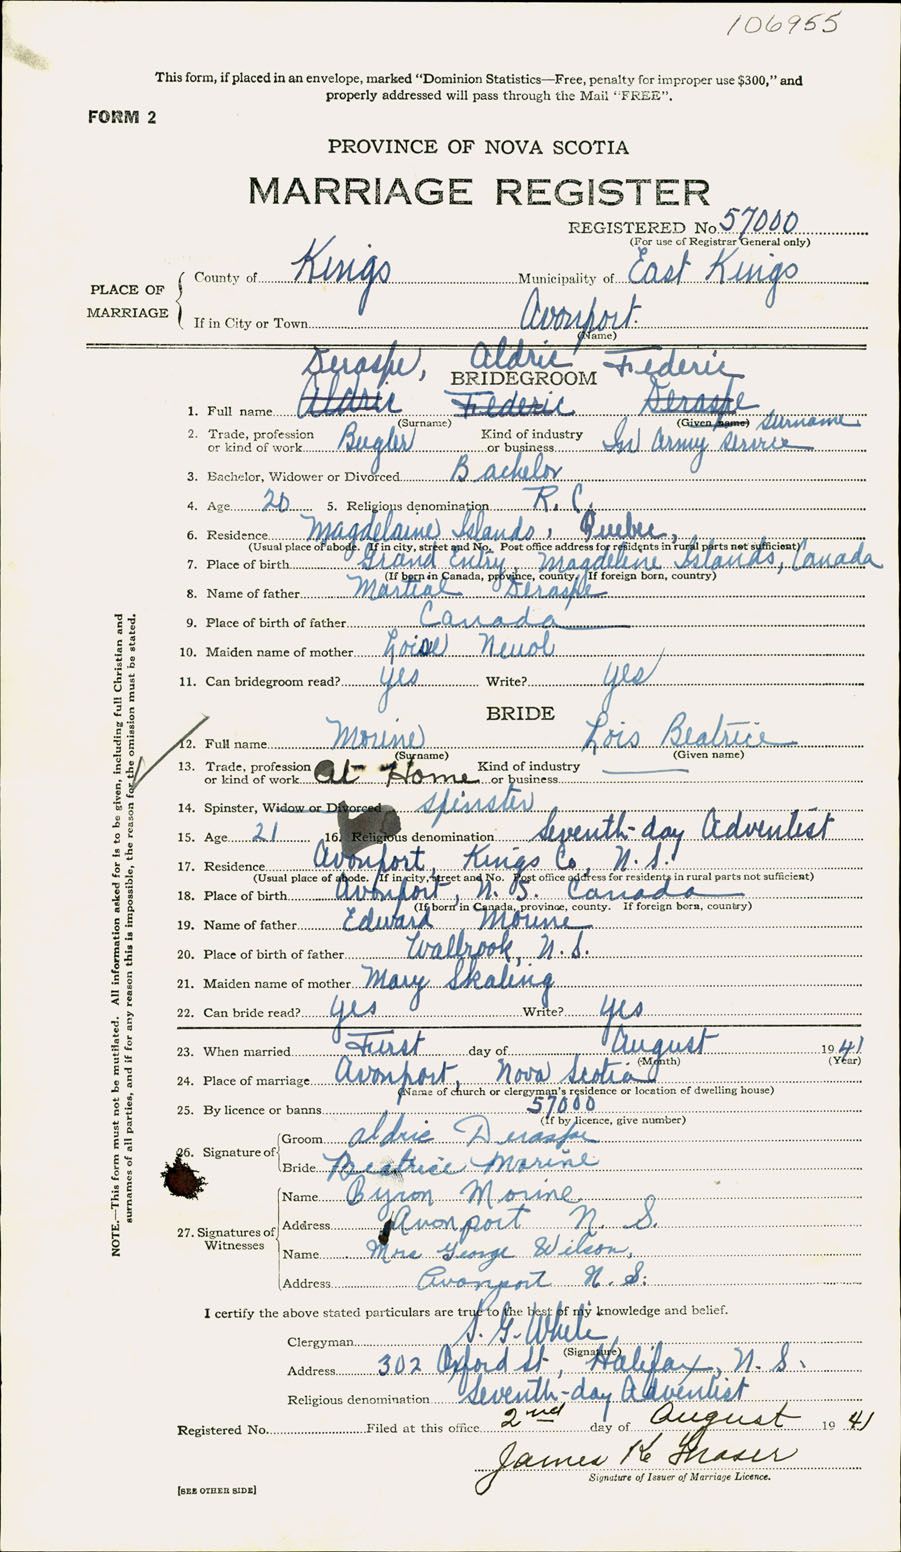 106955
This form, if placed in an envelope, marked "Dominion Statistics—Free, penalty for improper use $300," and
properly addressed will pass through the Mail "FREE".
FORM 2
PROVINCE OF NOVA SCOTIA
MARRIAGE REGISTER
REGISTERED No. 57000
(For use of Registrar General only)
PLACE OF MARRIAGE
County of Kings Municipality of East Kings
If in City or Town Avonport.
(Name)
Deraspe, Aldric Federic
BRIDEGROOM
1. Full name Aldric Federic Deraspe
(Surname) (Given name) Surname
2. Trade, profession or kind of work Bugler Kind of industry or business In Army Service
3. Bachelor, Widower or Divorced Bachelor
4. Age 20 5. Religious denomination R. C.
6. Residence Magdelaine Islands, Quebec,
(Usual place of abode. If in city, street and No. Post office address for residents in rural parts not sufficient)
7. Place of birth Grand Entry, Magdeline Islands, Canada
(If born in Canada, province, county. If foreign born, country)
8. Name of father Martial Deraspe
9. Place of birth of father Canada
10. Maiden name of mother
11. Can bridegroom read? yes Write? yes
BRIDE
12. Full name Morine Lois Beatrice
(Surname) (Given name)
13. Trade, profession or kind of work At Home Kind of industry or business
14. Spinster, Widow or Divorced spinster
15. Age 21 16. Religious denomination Seventh-day Adventist
17. Residence Avonport, Kings Co, N. S.
(Usual place of abode. If in city, street and No. Post office address for residents in rural parts not sufficient)
18. Place of birth Avonport, N. S. Canada
(If born in Canada, province, county. If foreign born, country)
19. Name of father Edward Morine
20. Place of birth of father Wallbrook, N. S.
21. Maiden name of mother Mary Skaling
22. Can bride read? yes Write? yes
23. When married First day of August 1941
(Month) (Year)
24. Place of marriage Avonport, Nova Scotia
(Name of church or clergyman's residence or location of dwelling house)
25. By licence or banns 57000
(If by licence, give number)
26. Signature of
Groom Aldric Deraspe
Bride Beatrice Morine
27. Signatures of Witnesses
Name Byron Morine
Address Avonport N. S.
Name Mrs George Wilson,
Address Avonport N. S.
I certify the above stated particulars are true to the best of my knowledge and belief.
Clergyman S. G. White
(Signature)
Address 302 Oxford St, Halifax, N. S.
Religious denomination Seventh-day Adventist
Registered No. Filed at this office 2nd day of August 1941
James K Fraser
Signature of Issuer of Marriage Licence.
[SEE OTHER SIDE]
NOTE.—This form must not be mutilated. All information asked for is to be given, including full Christian and
surnames of all parties, and if for any reason this is impossible, the reason for the omission must be stated.